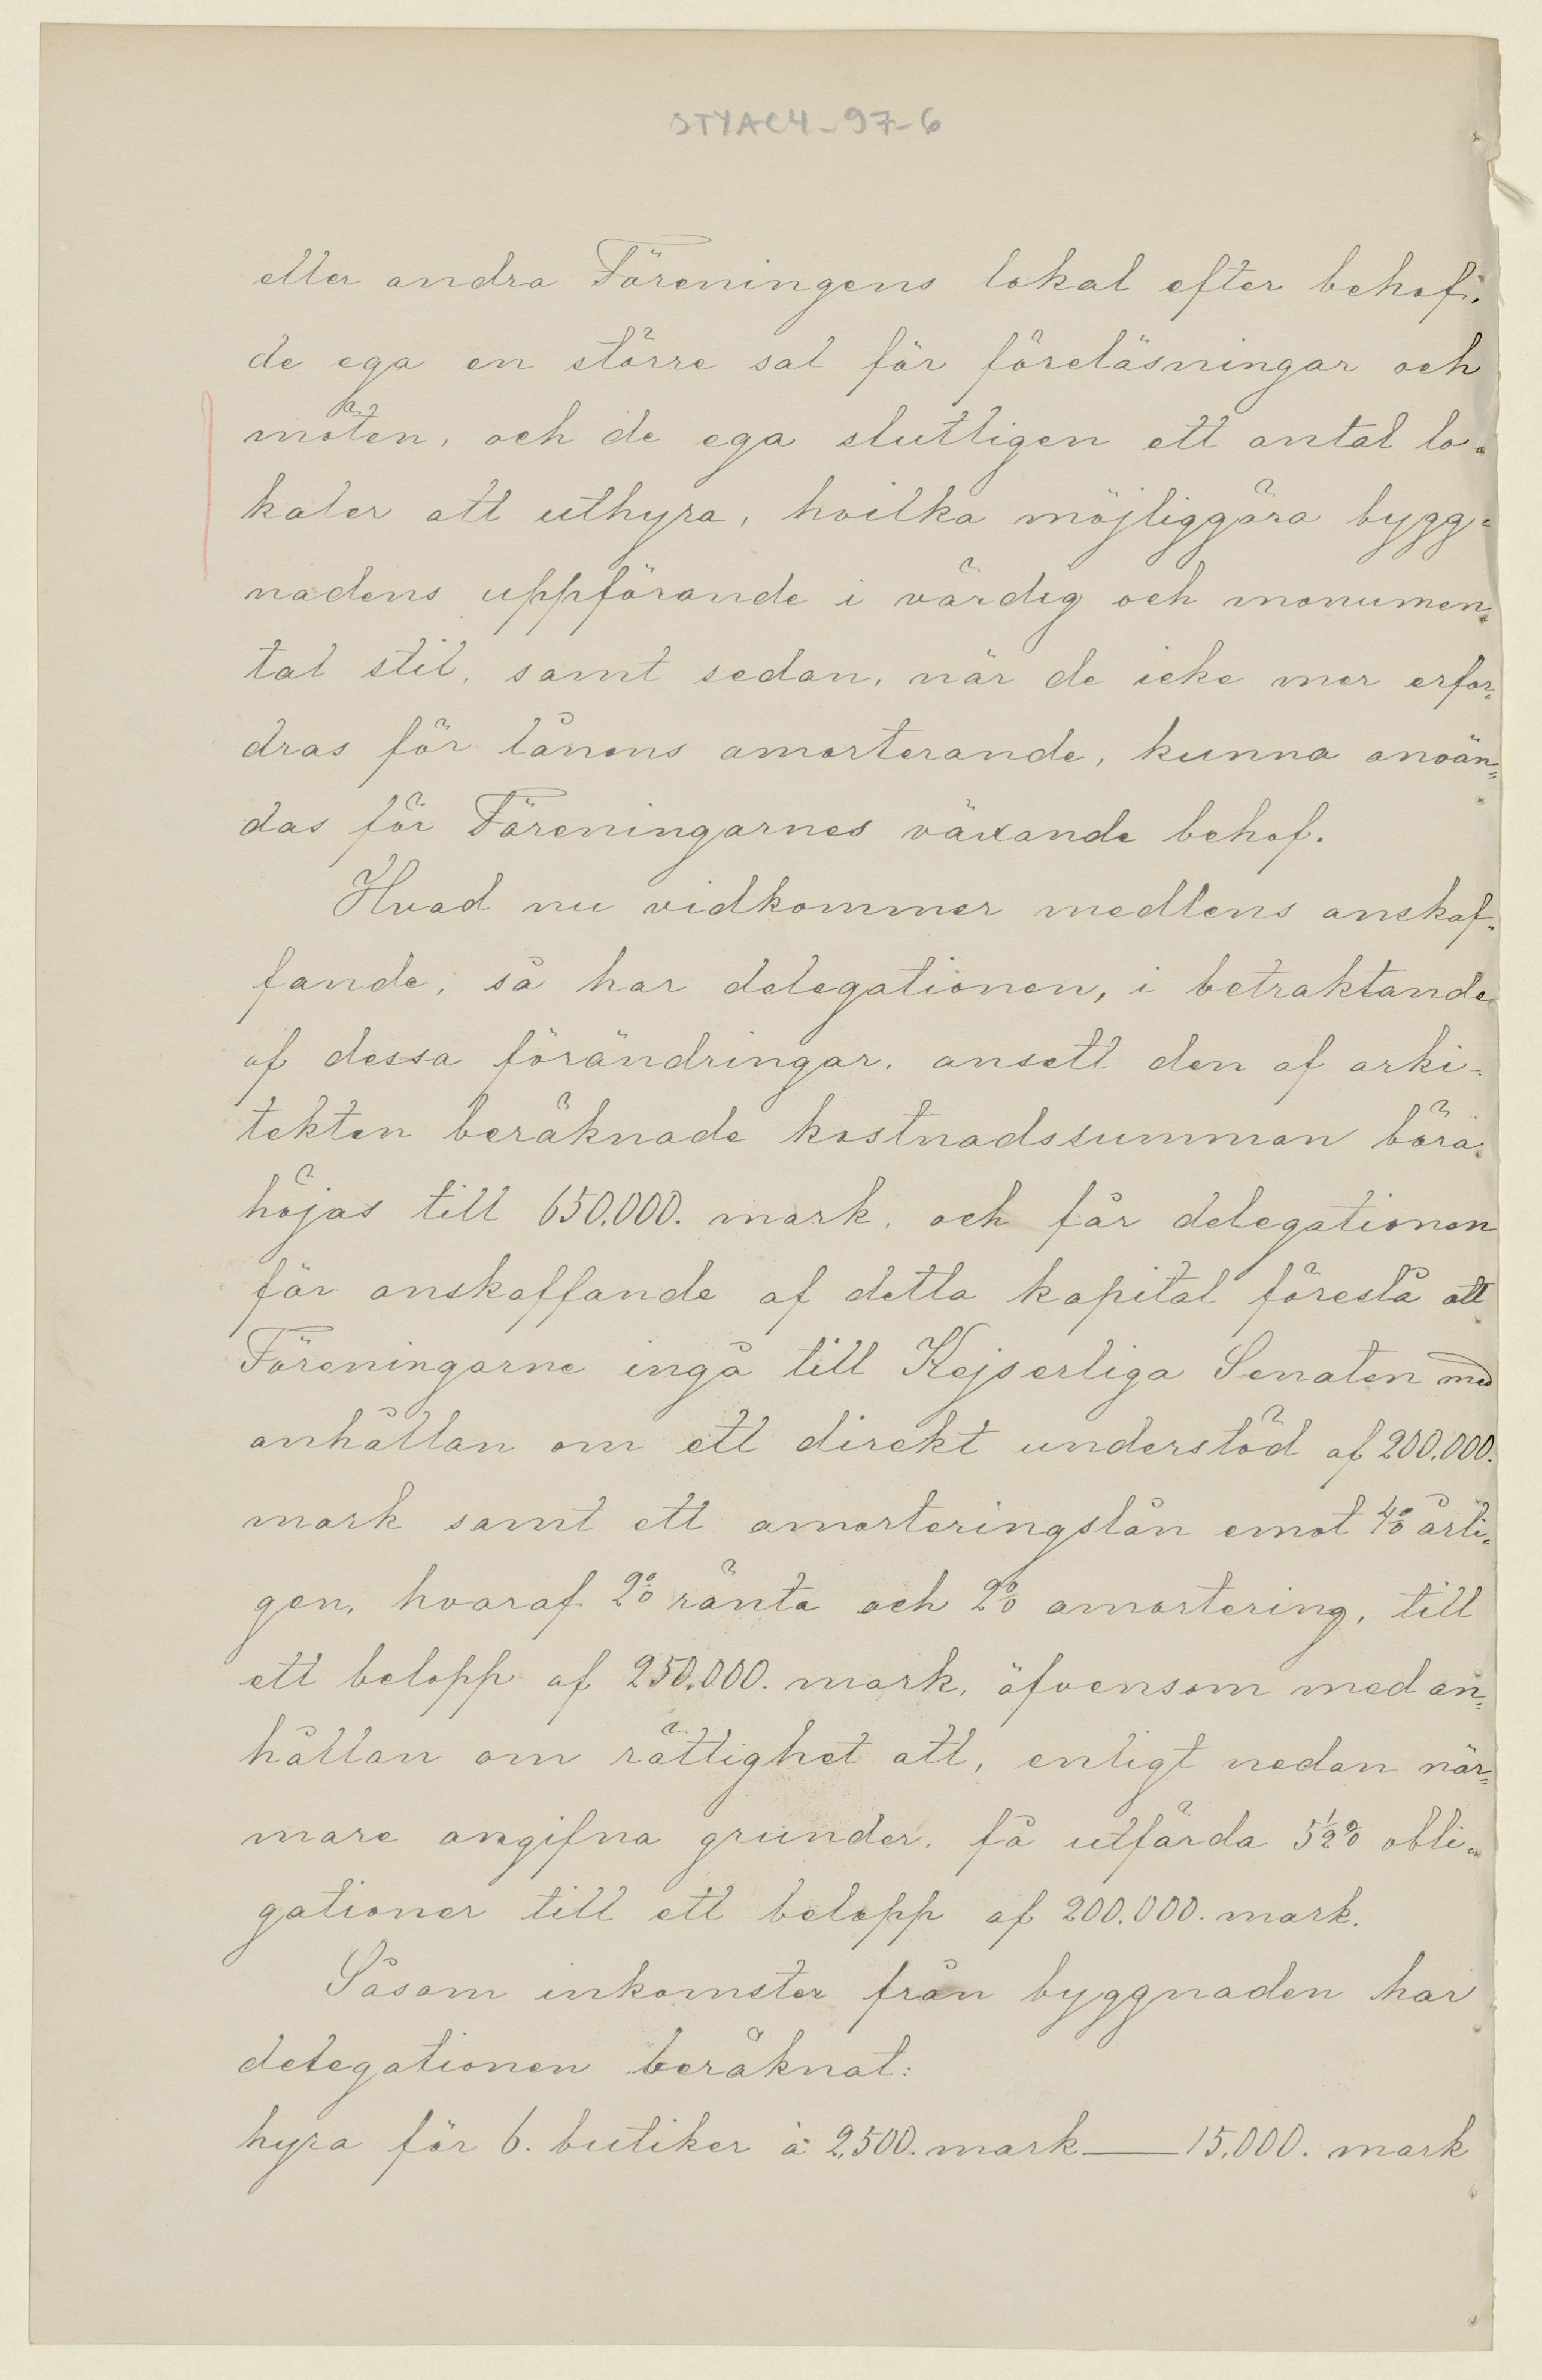 STYAC4-97-6
eller andra Föreningens lokal efter behof;
de ega en större sal för föreläsningar och
möten, och de ega slutligen ett antal lo-
kaler att uthyra, hvilka möjliggöra bygg-
nadens uppförande i värdig och monumen-
tal stil, samt sedan, när de icke mer erfor-
dras för lånens amorterande, kunna använ-
das för Föreningarnes växande behof.
Hvad nu vidkommer medlens anskaf-
fande, så har delegationen, i betraktande
af dessa förändringar, ansett den af arki-
tekten beräknade kostnadssumman böra
höjas till 650.000. mark, och får delegationen
för anskaffande af detta kapital föreslå att
Föreningarne ingå till Kejserliga Senaten med
anhållan om ett direkt understöd af 200.000.
mark samt ett amorteringslån emot 4% årli-
gen, hvaraf 2% ränta och 2% amortering, till
ett belopp af 250.000. mark, äfvensom med an-
hållan om rättighet att, enligt nedan när-
mare angifna grunder, få utfärda 5½% obli-
gationer till ett belopp af 200.000. mark.
Såsom inkomster från byggnaden har
delegationen beräknat:
hyra för 6. butiker à 2,500. mark — 15,000. mark